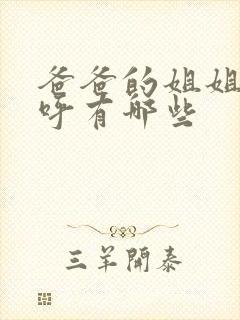 爸爸的姐姐
呼有哪些
三羊開泰